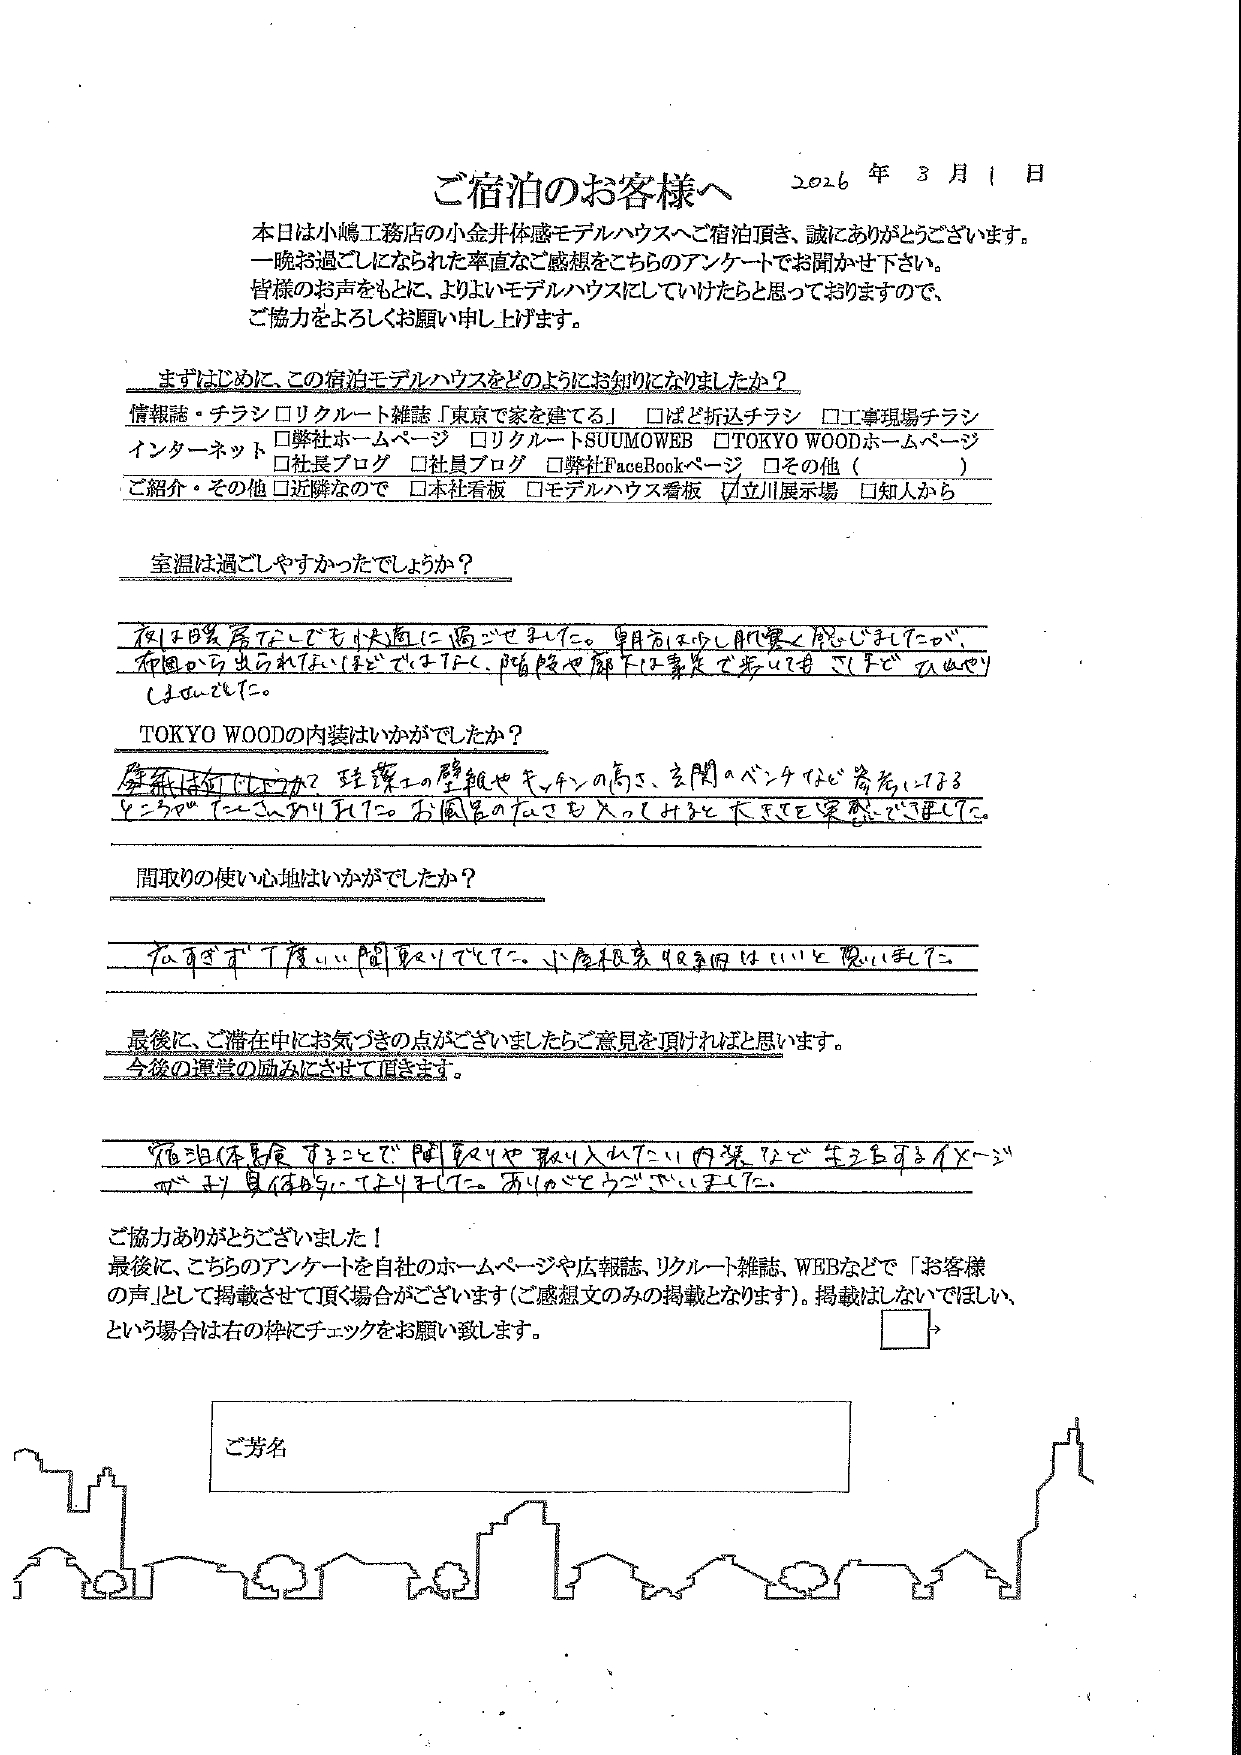 2026 年 3 月 1 日
ご宿泊のお客様へ
本日は小嶋工務店の小金井体感モデルハウスへご宿泊頂き、誠にありがとうございます。
一晩お過ごしになられた率直なご感想をこちらのアンケートでお聞かせ下さい。
皆様のお声をもとに、よりよいモデルハウスにしていけたらと思っておりますので、
ご協力をよろしくお願い申し上げます。
まずはじめに、この宿泊モデルハウスをどのようにお知りになりましたか？
情報誌・チラシ □リクルート雑誌「東京で家を建てる」 □ぱど折込チラシ □工事現場チラシ
インターネット □弊社ホームページ □リクルートSUUMOWEB □TOKYO WOODホームページ
□社長ブログ □社員ブログ □弊社FaceBookページ □その他（ ）
ご紹介・その他 □近隣なので □本社看板 □モデルハウス看板 ☑立川展示場 □知人から
室温は過ごしやすかったでしょうか？
夜は暖房なしでも快適に過ごせました。朝方は少し肌寒く感じましたが、
布団から出られないほどではなく、階段や廊下は素足で歩いても さほど ひんやり
しませんでした。
TOKYO WOODの内装はいかがでしたか？
珪藻土の壁紙や キッチンの高さ、玄関のベンチなど 参考になる
ところが たくさんありました。お風呂の広さも 入ってみると 大きさを実感できました。
間取りの使い心地はいかがでしたか？
広すぎず 丁度いい間取りでした。小屋根裏収納はいいと思いました。
最後に、ご滞在中にお気づきの点がございましたらご意見を頂ければと思います。
今後の運営の励みにさせて頂きます。
宿泊体験することで 間取りや 取り入れたい内装など 生活するイメージ
が より 具体的になりました。ありがとうございました。
ご協力ありがとうございました！
最後に、こちらのアンケートを自社のホームページや広報誌、リクルート雑誌、WEBなどで「お客様
の声」として掲載させて頂く場合がございます（ご感想文のみの掲載となります）。掲載はしないでほしい、
という場合は右の枠にチェックをお願い致します。
ご芳名